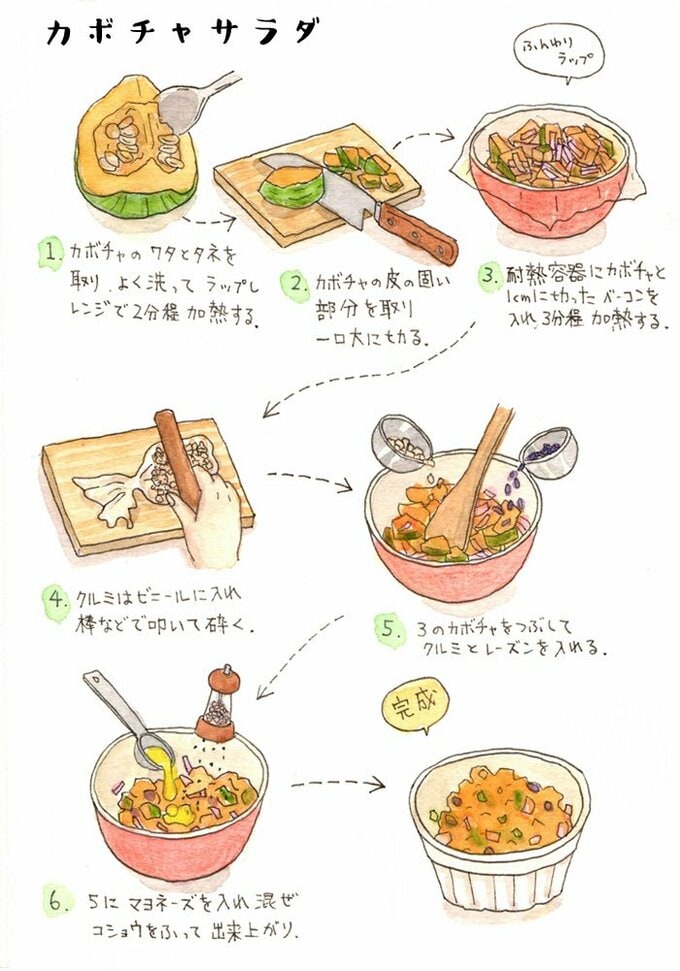 カボチャサラダ
ふんわり
ラップ
1. カボチャの ワタとタネを
取り、よく洗って ラップし
レンジで2分程 加熱する。
2. カボチャの皮の固い
部分を取り
一口大に切る。
3. 耐熱容器にカボチャと
1cmに切った ベーコンを
入れ、3分程 加熱する。
4. クルミはビニールに入れ
棒などで叩いて砕く。
5. 3のカボチャをつぶして
クルミとレーズンを入れる。
完成
6. 5に マヨネーズを入れ 混ぜ
コショウをふって 出来上がり。